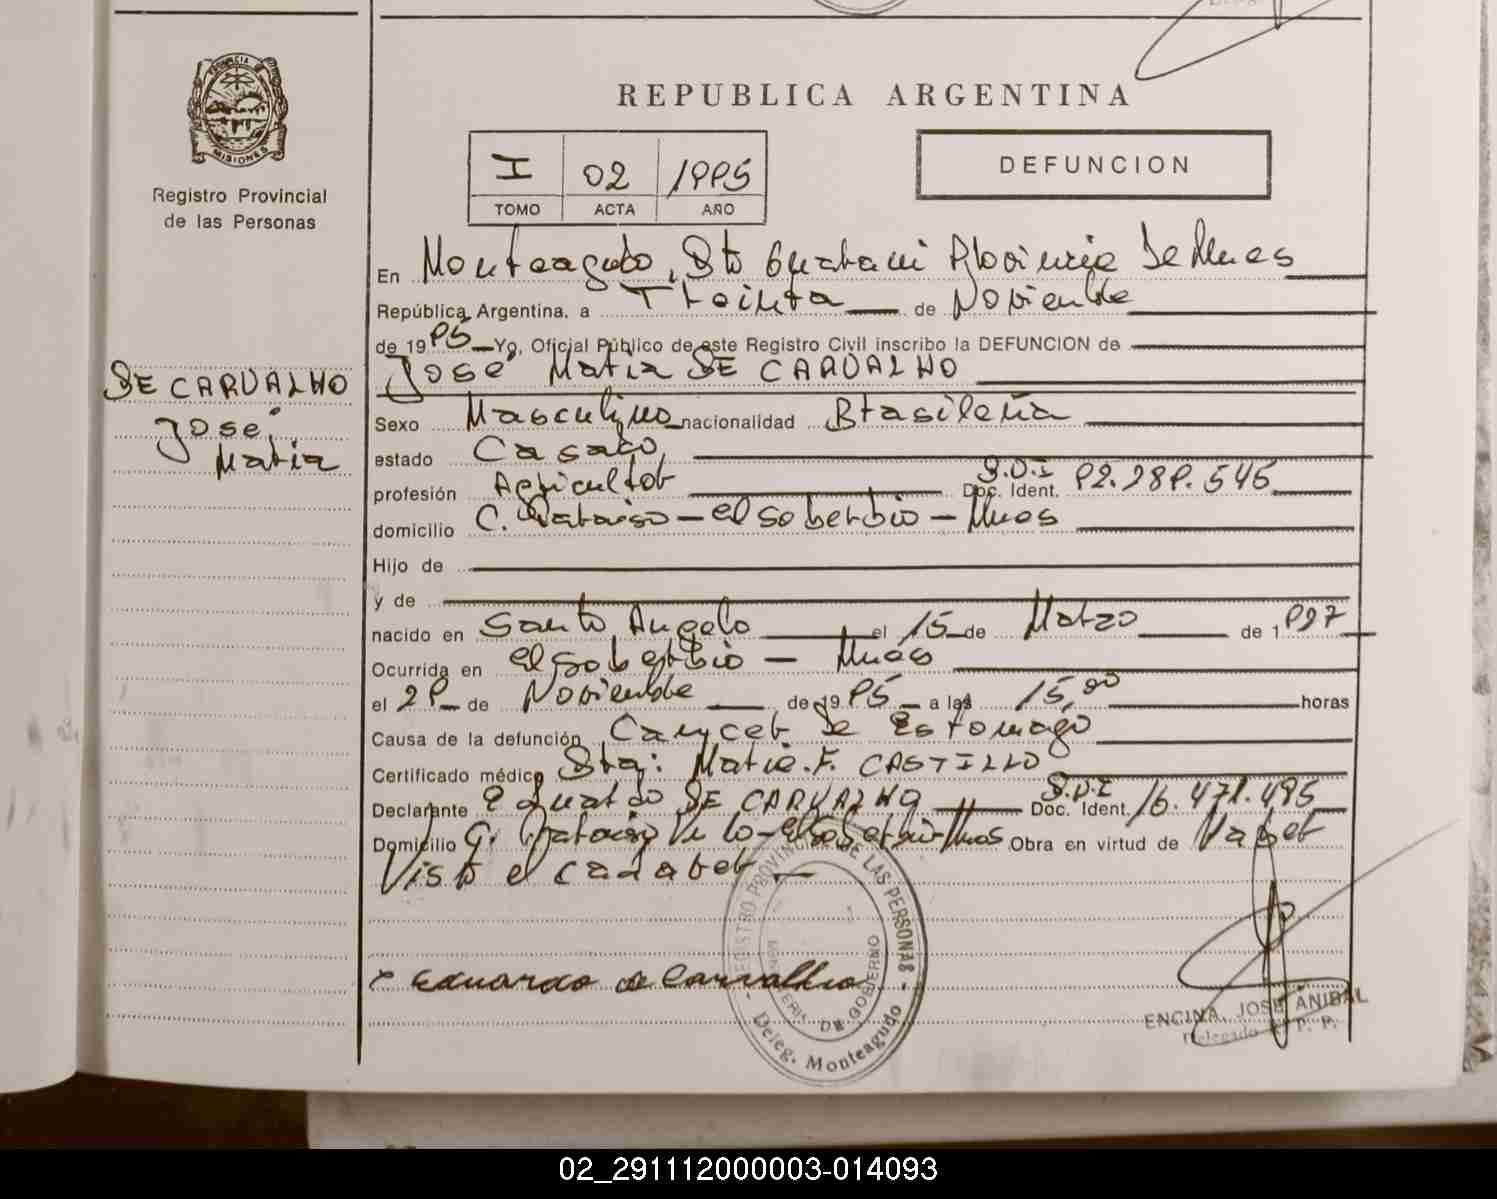 REPUBLICA ARGENTINA
PROVINCIA DE MISIONES
Registro Provincial
de las Personas
I 02 1995
TOMO ACTA AÑO
DEFUNCION
En Monteagudo, Dto Guarani Provincia De Mnes
República Argentina, a Treinta de Noviembre
de 1995 Yo, Oficial Público de este Registro Civil inscribo la DEFUNCION de
José Maria DE CARVALHO
DE CARVALHO
José
Maria
Sexo Masculino nacionalidad Brasileña
estado Casado
profesión Agricultor D.D.I Doc. Ident. 92.289.546
domicilio C. Paraiso - El Soberbio - Mnes
Hijo de
y de
nacido en Santo Angelo el 15 de Marzo de 1927
Ocurrida en El Soberbio - Mnes
el 29 de Noviembre de 1995 a las 15,00 horas
Causa de la defunción Cancer de Estomago
Certificado médico Dra: Maria. F. CASTILLO
Declarante Eduardo DE CARVALHO D.D.I Doc. Ident. 16.471.495
Domicilio C. Paraiso - El Soberbio - Mnes Obra en virtud de Haber
Visto el cadaver
x Eduardo de Carvalho
REGISTRO PROVINCIAL DE LAS PERSONAS
MINISTERIO DE GOBIERNO
Deleg. Monteagudo
ENCINA, JOSE ANIBAL
Delegado R. P. P.
02_291112000003-014093